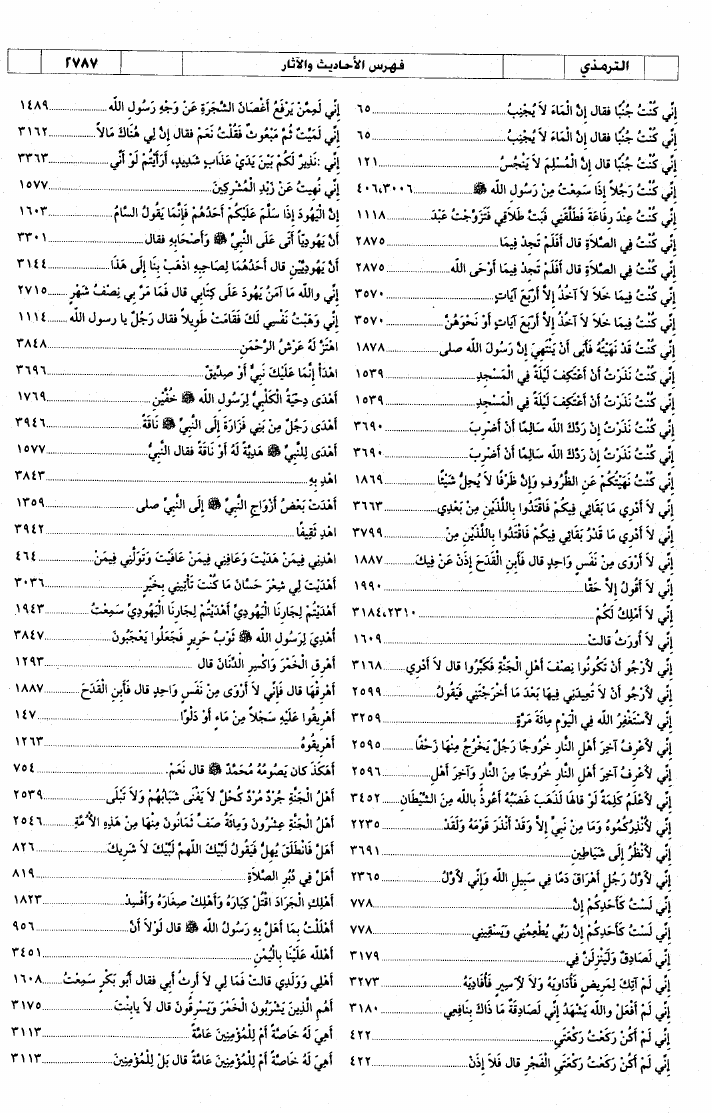 الترمذي فهرس الأحاديث والآثار ٢٧٨٧
إنِّي كُنْتُ جُنُبًا فقال إنَّ الْمَاءَ لاَ يُجْنِبُ ٦٥
إنِّي كُنْتُ جُنُبًا فقال إنَّ الْمَاءَ لاَ يُجْنِبُ ٦٥
إنِّي كُنْتُ جُنُبًا قال إنَّ الْمُسْلِمَ لاَ يَنْجُسُ ١٢١
إنِّي كُنْتُ رَجُلاً إذَا سَمِعْتُ مِنْ رَسُولِ الله ﷺ ٤٠٦،٣٠٠٦
إنِّي كُنْتُ عِنْدَ رِفَاعَةَ فَطَلَّقَنِي فَبَتَّ طَلاَقِي فَتَزَوَّجْتُ عَبْدَ ١١١٨
إنِّي كُنْتُ فِي الصَّلاَةِ قال أفَلَمْ تَجِدْ فِيمَا ٢٨٧٥
إنِّي كُنْتُ فِي الصَّلاَةِ قال أفَلَمْ تَجِدْ فِيمَا أوْحَى الله ٢٨٧٥
إنِّي كُنْتُ فِيمَا خَلاَ لاَ آخُذُ إلاَّ أرْبَعَ آيَاتٍ ٣٥٧٠
إنِّي كُنْتُ فِيمَا خَلاَ لاَ آخُذُ إلاَّ أرْبَعَ آيَاتٍ أوْ نَحْوَهُنَّ ٣٥٧٠
إنِّي كُنْتُ قَدْ نَهَيْتُهُ فَأبَى أنْ يَنْتَهِيَ إنَّ رَسُولَ الله صلى ١٨٧٨
إنِّي كُنْتُ نَذَرْتُ أنْ أعْتَكِفَ لَيْلَةً فِي الْمَسْجِدِ ١٥٣٩
إنِّي كُنْتُ نَذَرْتُ أنْ أعْتَكِفَ لَيْلَةً فِي الْمَسْجِدِ ١٥٣٩
إنِّي كُنْتُ نَذَرْتُ إنْ رَدَّكَ الله سَالِمًا أنْ أضْرِبَ ٣٦٩٠
إنِّي كُنْتُ نَذَرْتُ إنْ رَدَّكَ الله سَالِمًا أنْ أضْرِبَ ٣٦٩٠
إنِّي كُنْتُ نَهَيْتُكُمْ عَنِ الظُّرُوفِ وَإنَّ ظَرْفًا لاَ يُحِلُّ شَيْئًا ١٨٦٩
إنِّي لاَ أدْرِي مَا بَقَائِي فِيكُمْ فَاقْتَدُوا بِاللَّذَيْنِ مِنْ بَعْدِي ٣٦٦٣
إنِّي لاَ أدْرِي مَا قَدْرُ بَقَائِي فِيكُمْ فَاقْتَدُوا بِاللَّذَيْنِ مِنْ ٣٧٩٩
إنِّي لاَ أرْوَى مِنْ نَفَسٍ وَاحِدٍ قال فَأبِنِ الْقَدَحَ إذَنْ عَنْ فِيكَ ١٨٨٧
إنِّي لاَ أقُولُ إلاَّ حَقًّا ١٩٩٠
إنِّي لاَ أمْلِكُ لَكُمْ ٣١٨٤،٢٣١٠
إنِّي لاَ أُورَثُ قالت ١٦٠٩
إنِّي لأرْجُو أنْ تَكُونُوا نِصْفَ أهْلِ الْجَنَّةِ فَكَبَّرُوا قال لاَ أدْرِي ٣١٦٨
إنِّي لأرْجُو أنْ لاَ تُعِيدَنِي فِيهَا بَعْدَ مَا أخْرَجْتَنِي فَيَقُولُ ٢٥٩٩
إنِّي لأسْتَغْفِرُ الله فِي الْيَوْمِ مِائَةَ مَرَّةٍ ٣٢٥٩
إنِّي لأعْرِفُ آخِرَ أهْلِ النارِ خُرُوجًا رَجُلٌ يَخْرُجُ مِنْهَا زَحْفًا ٢٥٩٥
إنِّي لأعْرِفُ آخِرَ أهْلِ النارِ خُرُوجًا مِنَ النارِ وَآخِرَ أهْلِ ٢٥٩٦
إنِّي لأعْلَمُ كَلِمَةً لَوْ قالهَا لَذَهَبَ غَضَبُهُ أعُوذُ بالله مِنَ الشَّيْطَانِ ٣٤٥٢
إنِّي لأُنْذِرُكُمُوهُ وَمَا مِنْ نَبِيٍّ إلاَّ وَقَدْ أنْذَرَ قَوْمَهُ وَلَقَدْ ٢٢٣٥
إنِّي لأنْظُرُ إلَى شَيَاطِينِ ٣٦٩١
إنِّي لأوَّلُ رَجُلٍ أهْرَاقَ دَمًا فِي سَبِيلِ الله وَإنِّي لأوَّلُ ٢٣٦٥
إنِّي لَسْتُ كَأحَدِكُمْ إنَّ ٧٧٨
إنِّي لَسْتُ كَأحَدِكُمْ إنَّ رَبِّي يُطْعِمُنِي وَيَسْقِينِي ٧٧٨
إنِّي لَصَادِقٌ وَلَيَنْزِلَنَّ فِي ٣١٧٩
إنِّي لَمْ آتِكَ لِمَرِيضٍ فَأُدَاوِيَهُ وَلاَ لأسِيرٍ فَأُفَادِيَهُ ٣٢٧٣
إنِّي لَمْ أفْعَلْ والله يَشْهَدُ إنِّي لَصَادِقَةٌ مَا ذَاكَ بِنَافِعِي ٣١٨٠
إنِّي لَمْ أكُنْ رَكَعْتُ رَكْعَتَيِ ٤٢٢
إنِّي لَمْ أكُنْ رَكَعْتُ رَكْعَتَيِ الْفَجْرِ قال فَلاَ إذَنْ ٤٢٢
إنِّي لَمِمَّنْ يَرْفَعُ أغْصَانَ الشَّجَرَةِ عَنْ وَجْهِ رَسُولِ الله ١٤٨٩
إنِّي لَمَيِّتٌ ثُمَّ مَبْعُوثٌ فَقُلْتُ نَعَمْ فقال إنَّ لِي هُنَاكَ مَالاً ٣١٦٢
إنِّي :نَذِيرٌ لَكُمْ بَيْنَ يَدَيْ عَذَابٍ شَدِيدٍ، أرَأيْتُمْ لَوْ أنِّي ٣٣٦٣
إنِّي نُهِيتُ عَنْ زَبْدِ الْمُشْرِكِينَ ١٥٧٧
إنَّ الْيَهُودَ إذَا سَلَّمَ عَلَيْكُمْ أحَدُهُمْ فَإنَّمَا يَقُولُ السَّامُ ١٦٠٣
أنَّ يَهُودِيًّا أتَى عَلَى النَّبِيِّ ﷺ وَأصْحَابِهِ فقال ٣٣٠١
أنَّ يَهُودِيَّيْنِ قال أحَدُهُمَا لِصَاحِبِهِ اذْهَبْ بِنَا إلَى هَذَا ٣١٤٤
إنِّي والله مَا آمَنُ يَهُودَ عَلَى كِتَابِي قال فَمَا مَرَّ بِي نِصْفُ شَهْرٍ ٢٧١٥
إنِّي وَهَبْتُ نَفْسِي لَكَ فَقَامَتْ طَوِيلاً فقال رَجُلٌ يا رسول الله ١١١٤
اهْتَزَّ لَهُ عَرْشُ الرَّحْمَنِ ٣٨٤٨
اهْدَأْ إنَّمَا عَلَيْكَ نَبِيٌّ أوْ صِدِّيقٌ ٣٦٩٦
أهْدَى دِحْيَةُ الْكَلْبِيُّ لِرَسُولِ الله ﷺ خُفَّيْنِ ١٧٦٩
أهْدَى رَجُلٌ مِنْ بَنِي فَزَارَةَ إلَى النَّبِيِّ ﷺ نَاقَةً ٣٩٤٦
أهْدَى لِلنَّبِيِّ ﷺ هَدِيَّةً لَهُ أوْ نَاقَةً فقال النَّبِيُّ ١٥٧٧
اهْدِ بِهِ ٣٨٤٣
أهْدَتْ بَعْضُ أزْوَاجِ النَّبِيِّ ﷺ إلَى النَّبِيِّ صلى ١٣٥٩
اهْدِ ثَقِيفًا ٣٩٤٢
اهْدِنِي فِيمَنْ هَدَيْتَ وَعَافِنِي فِيمَنْ عَافَيْتَ وَتَوَلَّنِي فِيمَنْ ٤٦٤
أهْدَيْتَ لِي شِعْرَ حَسَّانَ مَا كُنْتَ تَأْتِينِي بِخَيْرٍ ٣٠٣٦
أهْدَيْتُمْ لِجَارِنَا الْيَهُودِيِّ أهْدَيْتُمْ لِجَارِنَا الْيَهُودِيِّ سَمِعْتُ ١٩٤٣
أُهْدِيَ لِرَسُولِ الله ﷺ ثَوْبُ حَرِيرٍ فَجَعَلُوا يَعْجَبُونَ ٣٨٤٧
أهْرِقِ الْخَمْرَ وَاكْسِرِ الدِّنَانَ قال ١٢٩٣
أهْرِقْهَا قال فَإنِّي لاَ أرْوَى مِنْ نَفَسٍ وَاحِدٍ قال فَأبِنِ الْقَدَحَ ١٨٨٧
أهْرِيقُوا عَلَيْهِ سَجْلاً مِنْ مَاءٍ أوْ دَلْوًا ١٤٧
أهْرِيقُوهُ ١٢٦٣
أهَكَذَا كان يَصُومُهُ مُحَمَّدٌ ﷺ قال نَعَمْ ٧٥٤
أهْلُ الْجَنَّةِ جُرْدٌ مُرْدٌ كُحْلٌ لاَ يَفْنَى شَبَابُهُمْ وَلاَ تَبْلَى ٢٥٣٩
أهْلُ الْجَنَّةِ عِشْرُونَ وَمِائَةُ صَفٍّ ثَمَانُونَ مِنْهَا مِنْ هَذِهِ الأُمَّةِ ٢٥٤٦
أهَلَّ فَانْطَلَقَ يُهِلُّ فَيَقُولُ لَبَّيْكَ اللهمَّ لَبَّيْكَ لاَ شَرِيكَ ٨٢٦
أهَلَّ فِي دُبُرِ الصَّلاَةِ ٨١٩
أهْلِكِ الْجَرَادَ اقْتُلْ كِبَارَهُ وَأهْلِكْ صِغَارَهُ وَأفْسِدْ ١٨٢٣
أهْلَلْتُ بِمَا أهَلَّ بِهِ رَسُولُ الله ﷺ قال لَوْلاَ أنَّ ٩٥٦
أهِلَّهُ عَلَيْنَا بِالْيُمْنِ ٣٤٥١
أهْلِي وَوَلَدِي قالت فَمَا لِي لاَ أرِثُ أبِي فقال أبُو بَكْرٍ سَمِعْتُ ١٦٠٨
أهُمِ الَّذِينَ يَشْرَبُونَ الْخَمْرَ وَيَسْرِقُونَ قال لاَ يابِنْتَ ٣١٧٥
أهِيَ لَهُ خَاصَّةً أمْ لِلْمُؤْمِنِينَ عَامَّةً ٣١١٣
أهِيَ لَهُ خَاصَّةً أمْ لِلْمُؤْمِنِينَ عَامَّةً قال بَلْ لِلْمُؤْمِنِينَ ٣١١٣